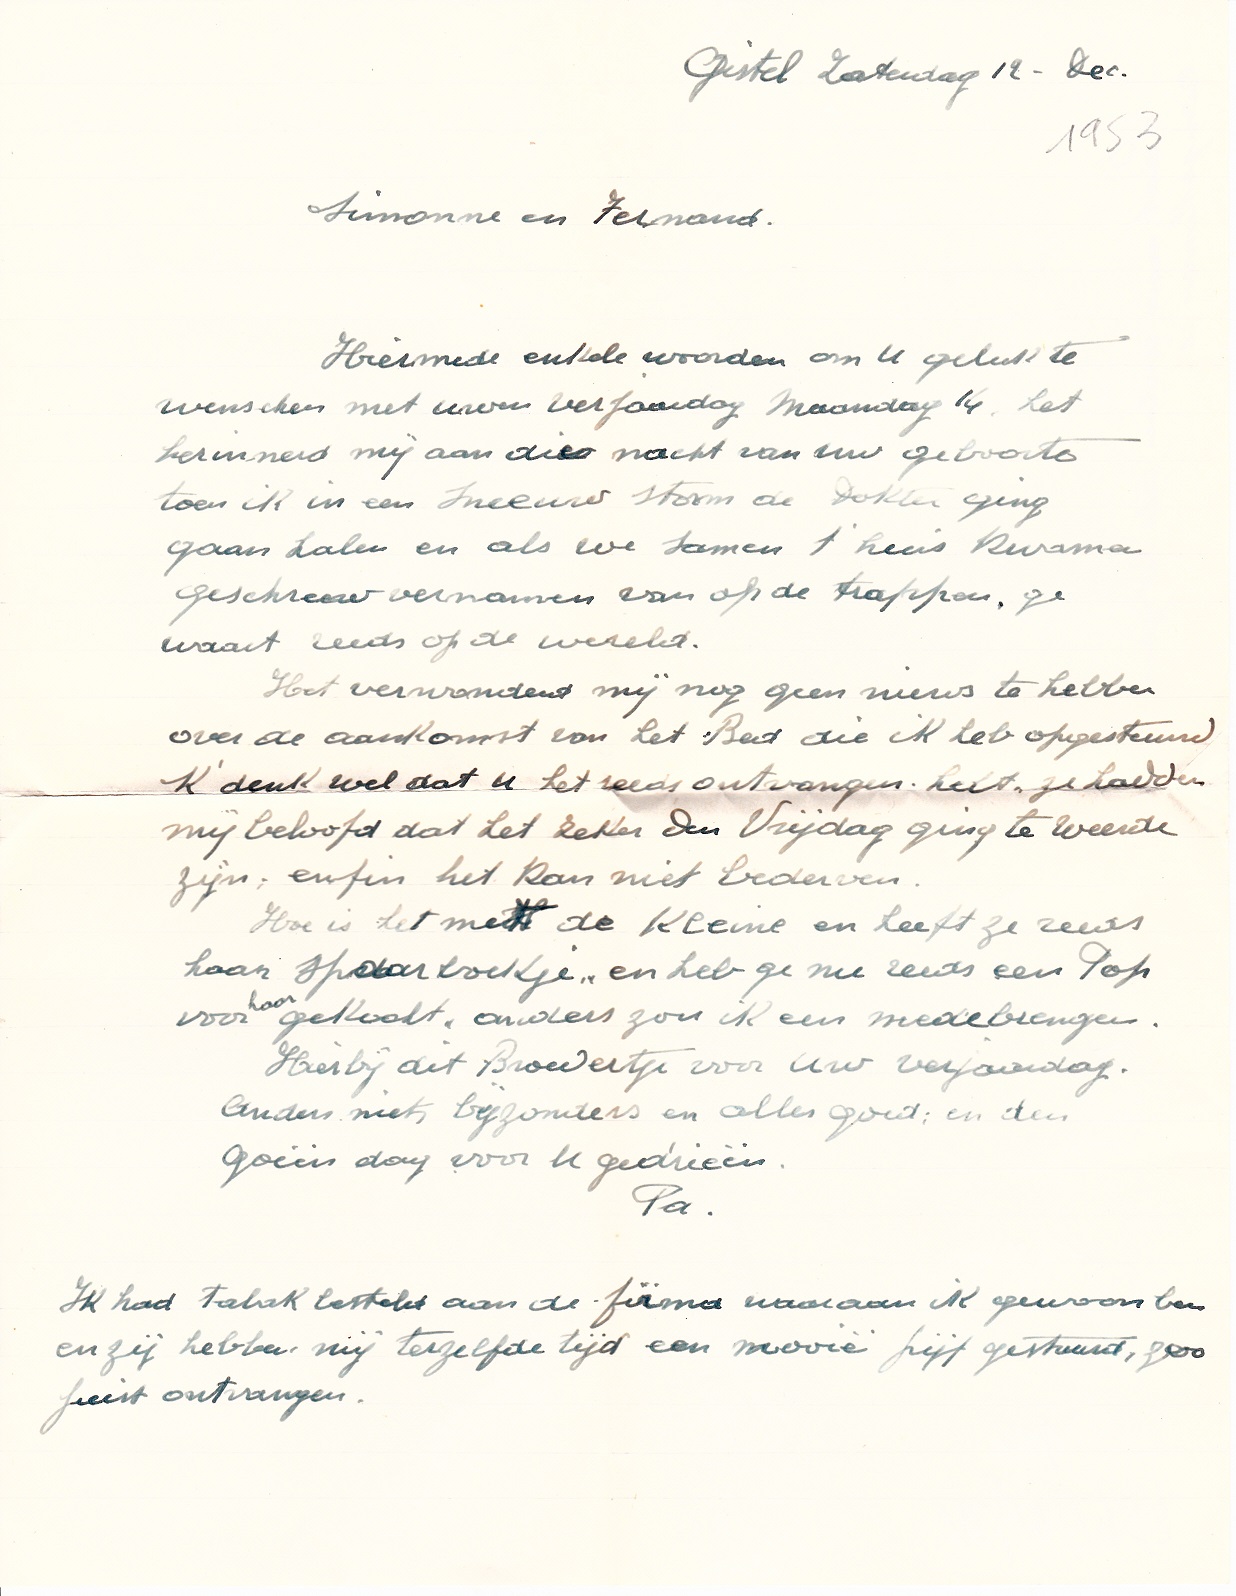 Gistel Zaterdag 12 - Dec.
1953
Simonne en Fernand.
Hiermede enkele woorden om U geluk te
wenschen met uwen verjaardag Maandag 14, het
herinnerd mij aan dien nacht van uw geboorte
toen ik in een sneeuw storm de Dokter ging
gaan halen en als we samen t'huis kwamen
geschreeuw vernamen van op de trappen, ge
waart reeds op de wereld.
Het verwonderd mij nog geen nieuws te hebben
over de aankomst van het Bed die ik heb opgestuurd
K'denk wel dat U het reeds ontvangen hebt, ze hadden
mij beloofd dat het zeker den Vrijdag ging te Weerde
zijn; enfin het kan niet bederven.
Hoe is het met de Kleine en heeft ze reeds
haar spaarboekje, en heb ge nu reeds een Pop
voor haar gekocht, anders zou ik een medebrengen.
Hierbij dit Browertje voor uw verjaardag.
Anders niets bijzonders en alles goed; en den
goeiën dag voor U gedrieën.
Pa.
Ik had Tabak besteld aan de firma waaraan ik gewoon ben
en zij hebben mij terzelfde tijd een mooië pijp gestuurd, zoo
juist ontvangen.